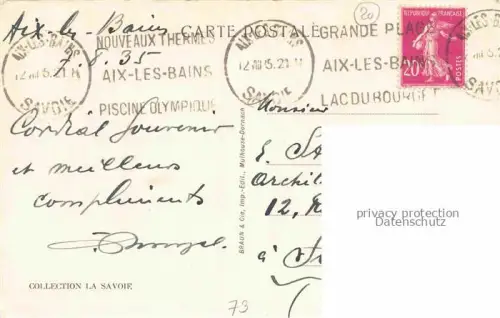 Aix-les-Bains
7.8.35
CARTE POSTALE
AIX-LES-BAINS
12 VIII 35.21 H
SAVOIE
NOUVEAUX THERMES
AIX-LES-BAINS
PISCINE OLYMPIQUE
AIX-LES-BAINS
12 VIII 35.21 H
SAVOIE
GRANDE PLAGE
AIX-LES-BAINS
LAC DU BOURGET
REPUBLIQUE FRANÇAISE
20c
POSTES
20
Cordial souvenir
et meilleurs
compliments
BRAUN & Cie, Imp.-Edit., Mulhouse-Dornach
Monsieur
E.
Archit
12,
à
privacy protection
Datenschutz
COLLECTION LA SAVOIE
73